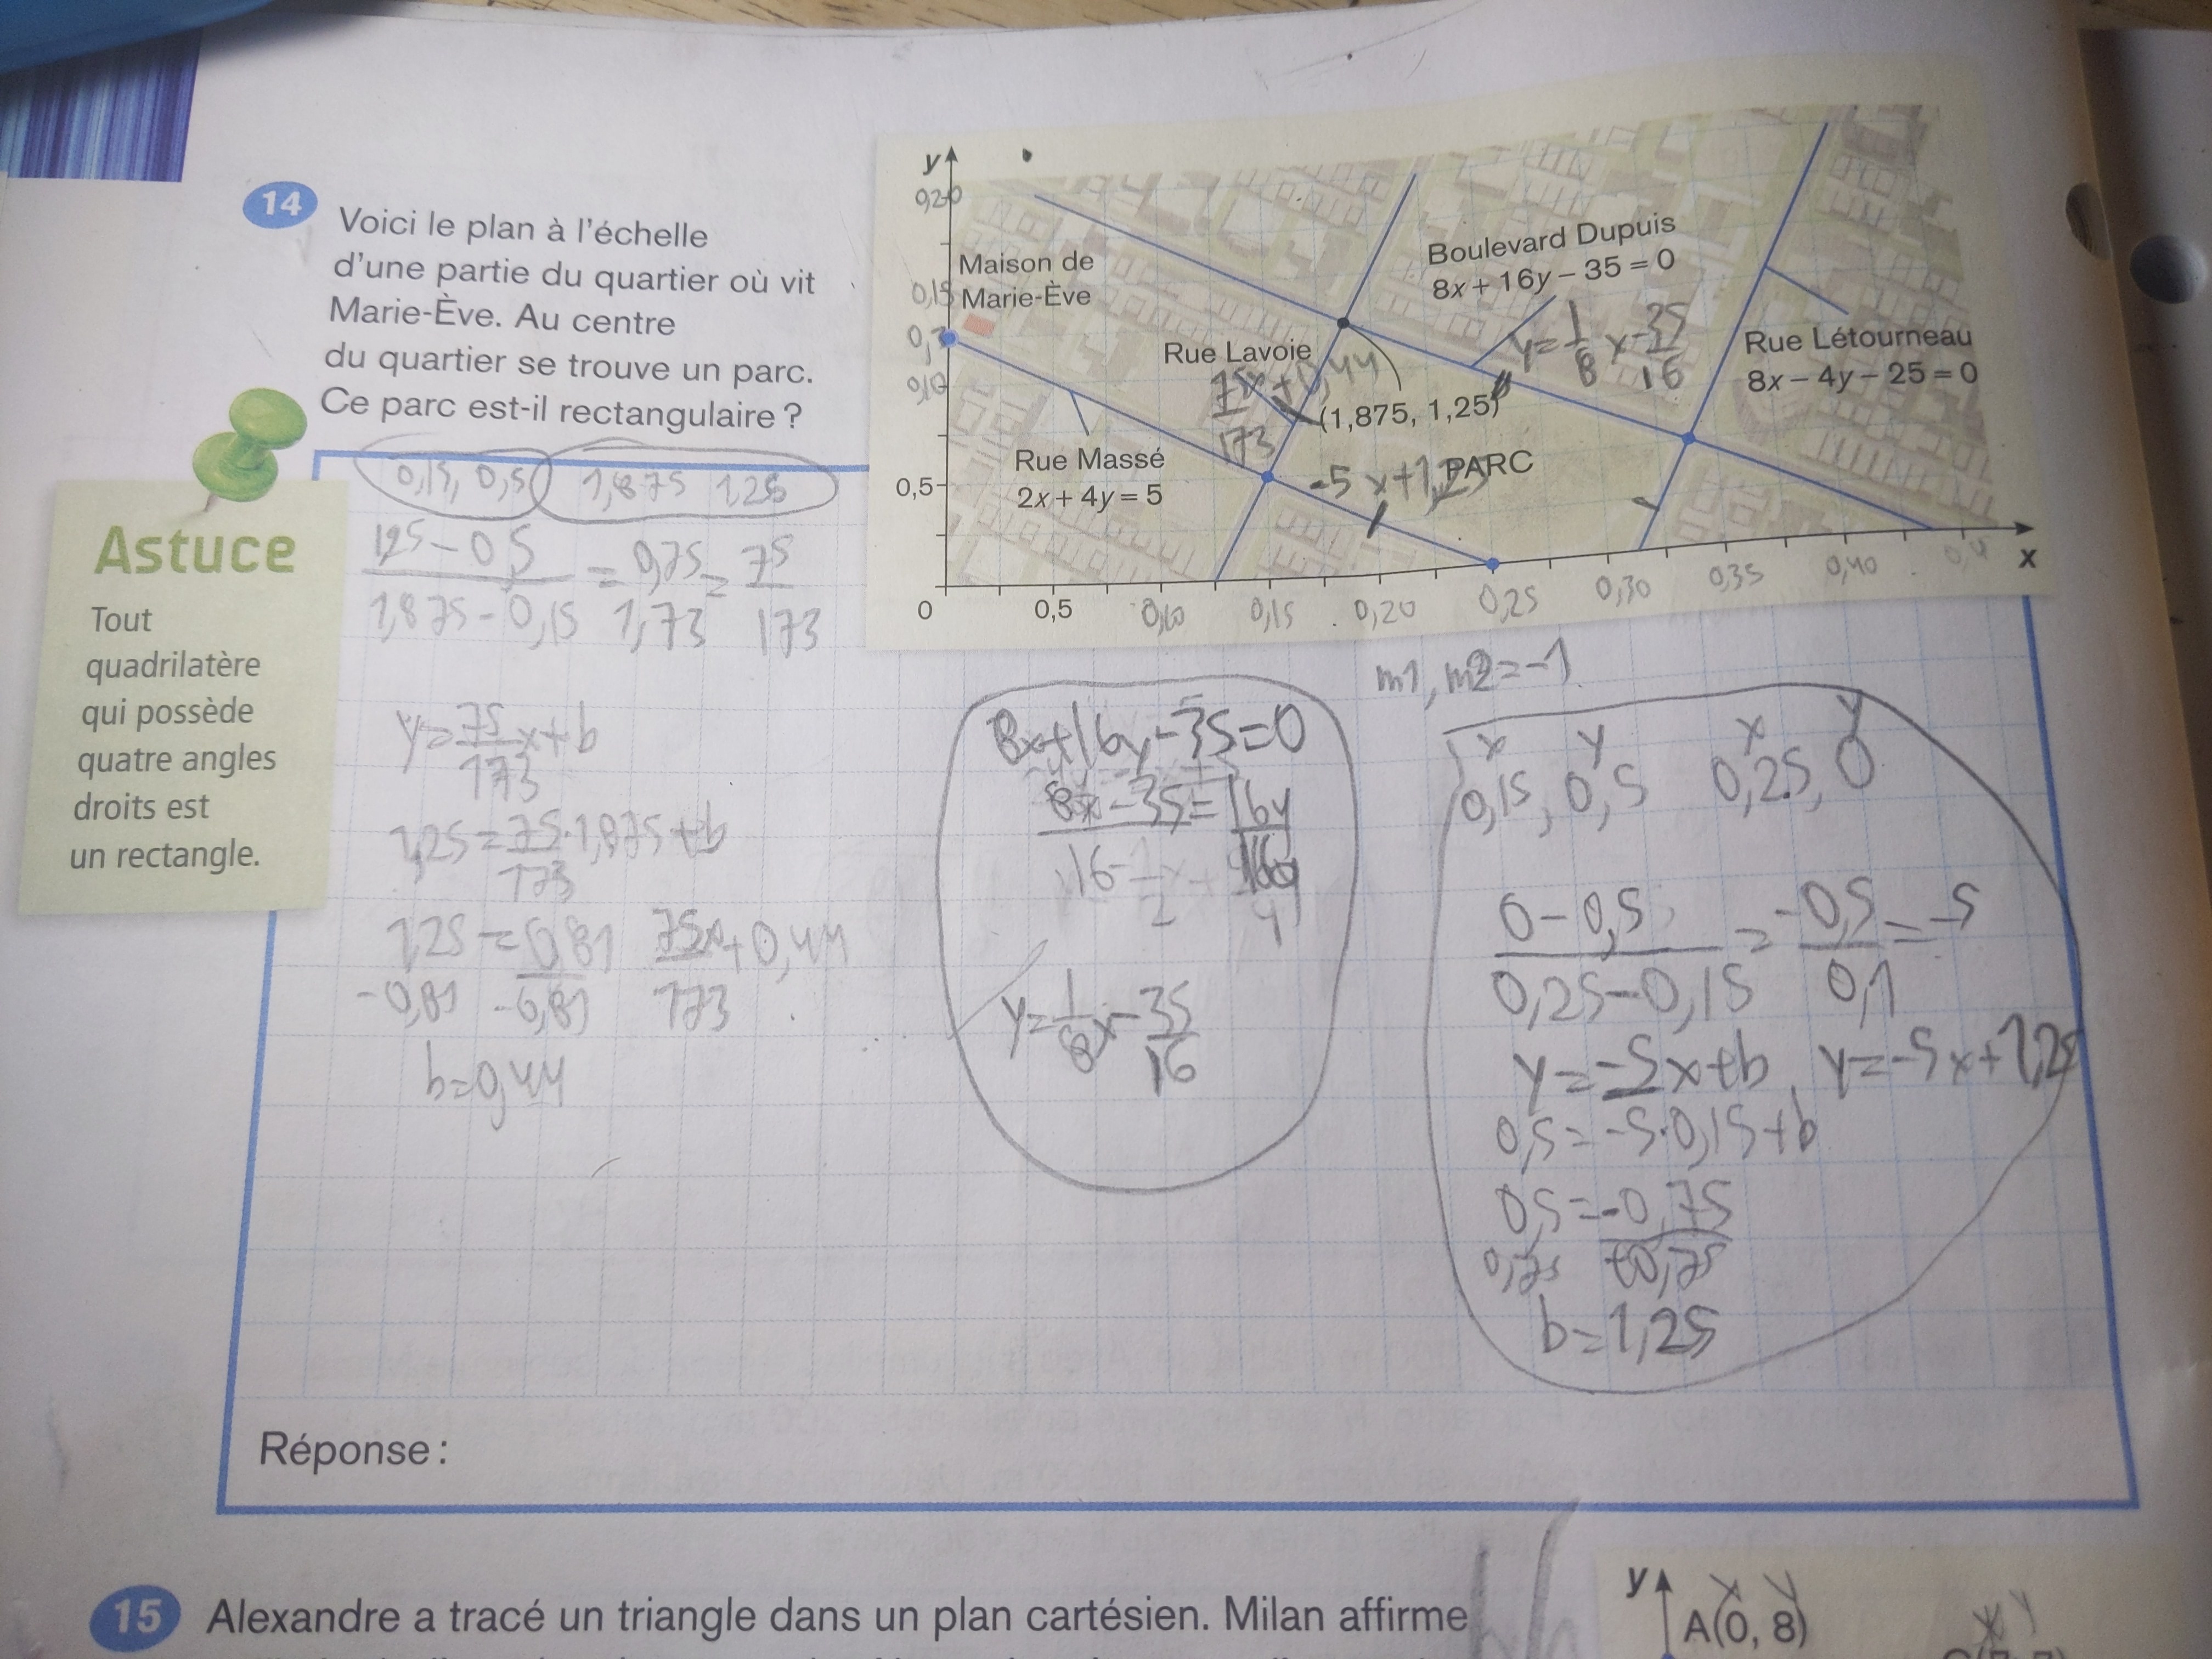 14
Voici le plan à l'échelle
d'une partie du quartier où vit
Marie-Ève. Au centre
du quartier se trouve un parc.
Ce parc est-il rectangulaire ?
Astuce
Tout
quadrilatère
qui possède
quatre angles
droits est
un rectangle.
y
0,20
Maison de
Marie-Ève
0,15
0,10
Boulevard Dupuis
8x + 16y – 35 = 0
y = 1/8 x - 35/16
Rue Létourneau
8x – 4y – 25 = 0
Rue Lavoie
75x/173 + 0,44
(1,875, 1,25)
Rue Massé
2x + 4y = 5
-5x+1,25
PARC
0,5
0 0,5 0,10 0,15 0,20 0,25 0,30 0,35 0,40 x
0,15, 0,5 1,875 1,25
125 - 0,5 / 1,875 - 0,15 = 0,75 / 1,73 = 75 / 173
y = 75/173 x + b
1,25 = 75/173 · 1,875 + b
1,25 = 0,81 75x/173 + 0,44
-0,81 -0,81
b = 0,44
8x+16y-35=0
8x - 35 = 16y
16
y = 1/8 x - 35/16
m1, m2 = -1
x y x y
0,15, 0,5 0,25, 0
0 - 0,5 / 0,25 - 0,15 = -0,5 / 0,1 = -5
y = -5x+b y = -5x+1,25
0,5 = -5·0,15+b
0,5 = -0,75
0,75 +0,75
b = 1,25
Réponse :
15
Alexandre a tracé un triangle dans un plan cartésien. Milan affirme
y
x y
A(0, 8)
x y